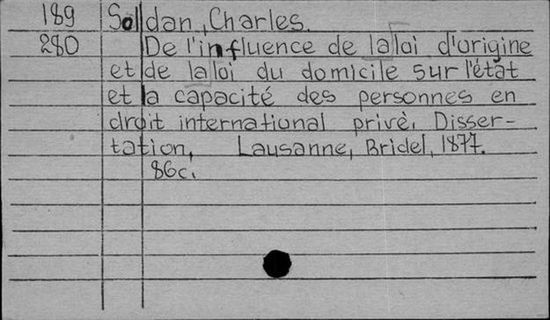 189 Soldan, Charles.
280 De l'influence de la loi d'origine
et de la loi du domicile sur l'état
et la capacité des personnes en
droit international privè, Disser-
tation, Lausanne, Bridel, 1877.
86c.